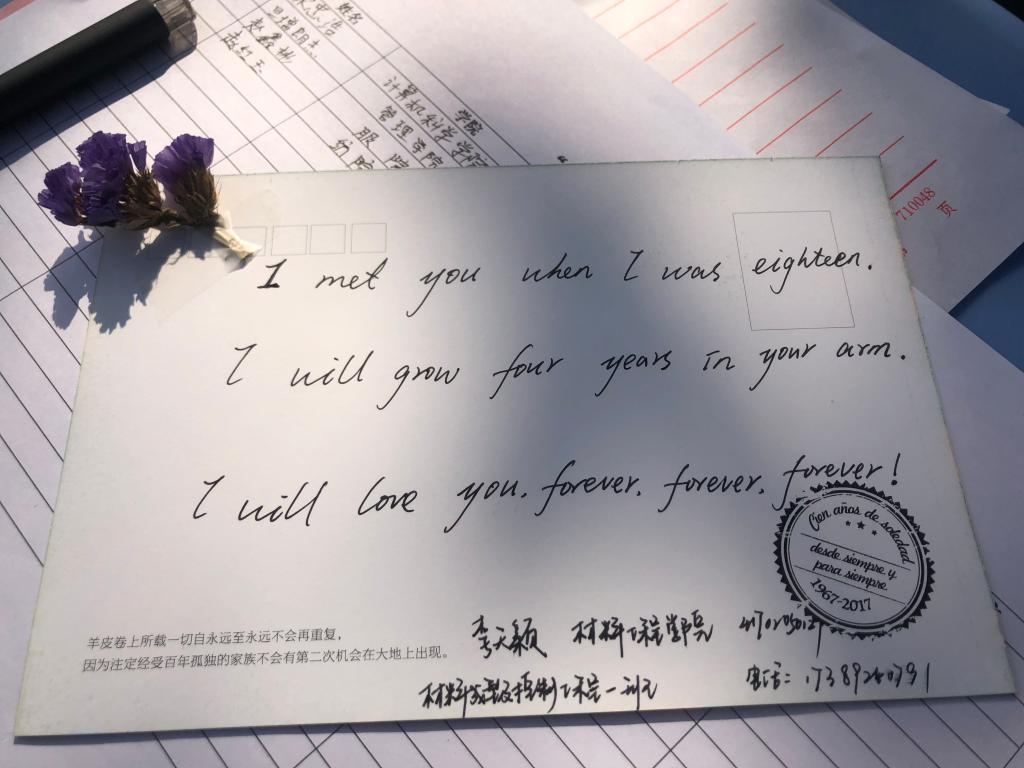 姓名
学院
计算机科学学院
管理学院
710048
页
I met you when I was eighteen.
I will grow four years in your arm.
I will love you. forever. forever. forever!
Cien años de soledad
desde siempre y
para siempre
1967-2017
羊皮卷上所载一切自永远至永远不会再重复，
因为注定经受百年孤独的家族不会有第二次机会在大地上出现。
李天颖 材料工程学院
材料成型及控制工程一班
电话：